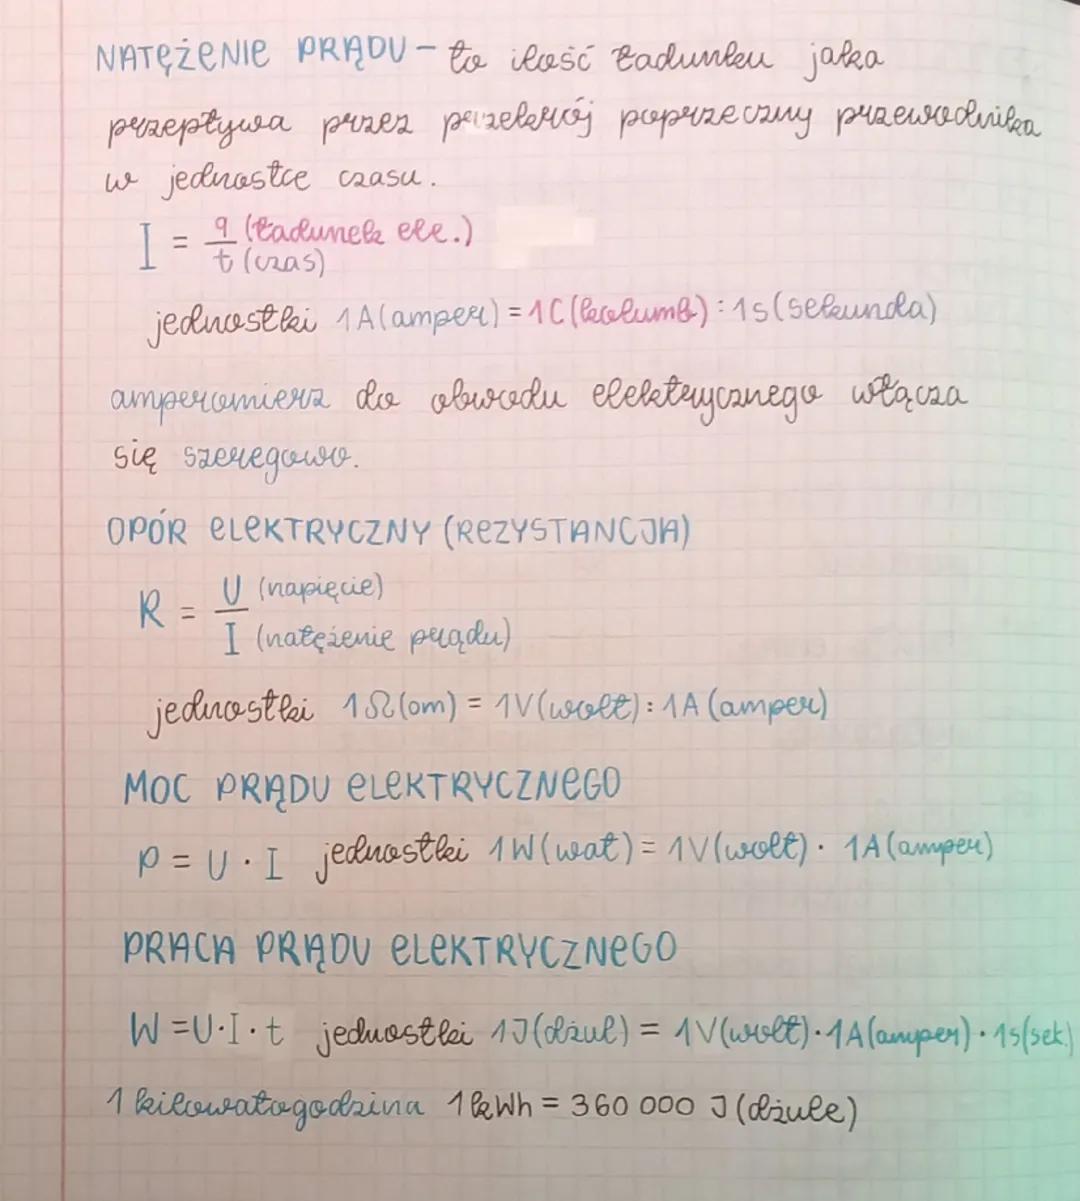 NATĘŻENIE PRĄDU - to ilość ładunku jaka
przepływa przez przekrój poprzeczny przewodnika
w jednostce czasu.
I = q (ładunek ele.)
t (czas)
jednostki 1A (amper) = 1C (kolumb) : 1s (sekunda)
amperomierz do obwodu elektrycznego włącza
się szeregowo.
OPÓR ELEKTRYCZNY (REZYSTANCJA)
R = U (napięcie)
I (natężenie prądu)
jednostki 1Ω (om) = 1V (wolt) : 1A (amper)
MOC PRĄDU ELEKTRYCZNEGO
P = U · I jednostki 1W (wat) = 1V (wolt) · 1A (amper)
PRACA PRĄDU ELEKTRYCZNEGO
W = U · I · t jednostki 1J (dżul) = 1V (wolt) · 1A (amper) · 1s (sek.)
1 kilowatogodzina 1kWh = 360 000 J (dżule)